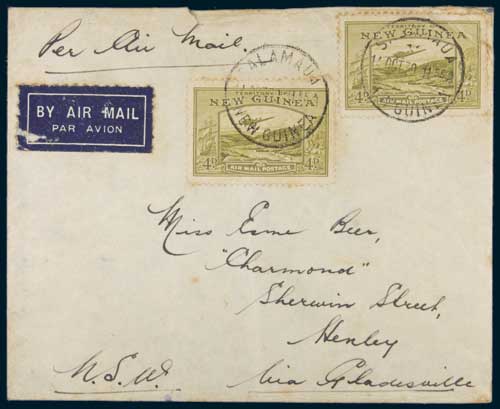 Per Air Mail.
BY AIR MAIL
PAR AVION
SALAMAUA
NEW GUINEA
TERRITORY OF
NEW GUINEA
4D 4D
AIR MAIL POSTAGE
TERRITORY OF
NEW GUINEA
4D 4D
AIR MAIL POSTAGE
GUINEA
Miss Esme Beer,
"Charmond"
Sherwin Street,
Henley
N.S.W. Via Gladesville